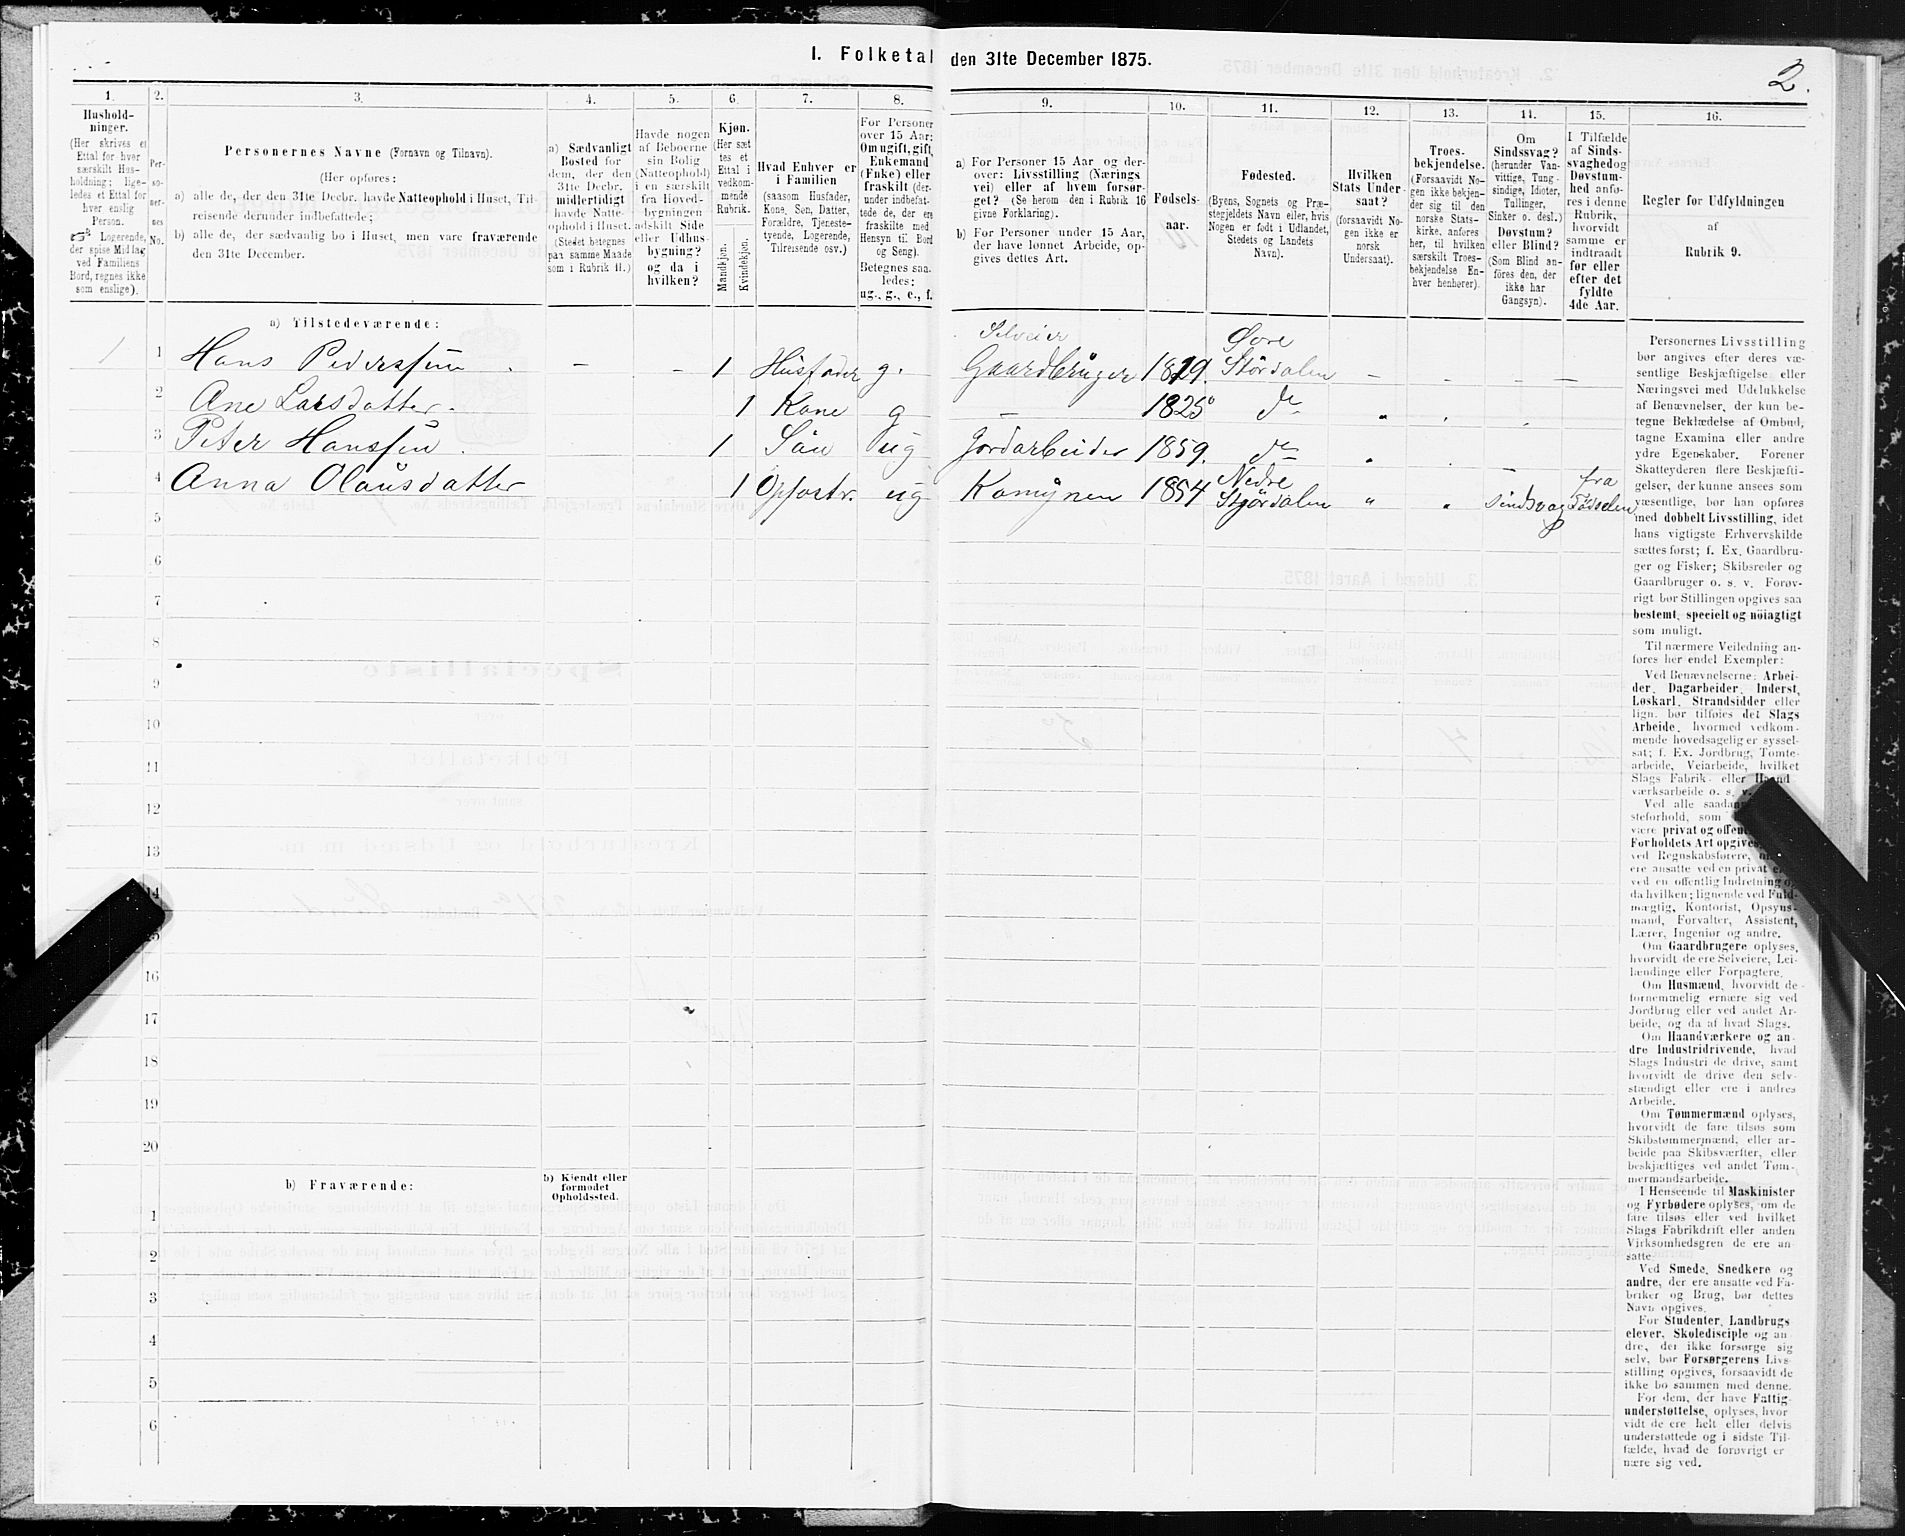 I. Folketal den 31te December 1875.
2.
1.
Hushold-
ninger.
(Her skrives et
Ettal for hver
særskilt Hus-
holdning; lige-
ledes et Ettal for
hver enslig
Person.
Logerende,
der spise Middag
ved Familiens
Bord, regnes ikke
som enslige).
2.
Per-
so-
ner-
nes
No.
3.
Personernes Navne (Fornavn og Tilnavn).
(Her opføres:
a) alle de, der den 31te Decbr. havde Natteophold i Huset, Til-
reisende derunder indbefattede;
b) alle de, der sædvanlig bo i Huset, men vare fraværende
den 31te December.
4.
a) Sædvanligt
Bosted for
dem, der den
31te Decbr.
midlertidigt
havde Natte-
ophold i Huset.
(Stedet betegnes
paa samme Maade
som i Rubrik 11.)
5.
Havde nogen
af Beboerne
sin Bolig
(Natteophold)
i en særskilt
fra Hoved-
bygningen
adskilt Side
eller Udhus-
bygning?
og da i
hvilken?
6.
Kjøn.
(Her sæt
tes et
Ettal i
vedkom-
mende
Rubrik.
Mandkjøn.
Kvindekjøn.
7.
Hvad Enhver er
i Familien
(saasom Husfader,
Kone, Søn, Datter,
Forældre, Tjeneste-
tyende, Logerende,
Tilreisende osv.)
8.
For Personer
over 15 Aar:
Om ugift, gift,
Enkemand
(Enke) eller
fraskilt (der-
under indbefat-
tede de, der ere
fraskilte med
Hensyn til Bord
og Seng).
Betegnes saa-
ledes:
ug., g., e., f.
9.
a) For Personer 15 Aar og der-
over: Livsstilling (Nærings
vei) eller af hvem forsør-
get? (Se herom den i Rubrik 16
givne Forklaring).
b) For Personer under 15 Aar,
der have lønnet Arbeide, op-
gives dettes Art.
10.
Fødsels-
aar.
11.
Fødested.
(Byens, Sognets og Præ-
stegjeldets Navn eller, hvis
Nogen er født i Udlandet,
Stedets og Landets
Navn).
12.
Hvilken
Stats Under-
saat?
(forsaavidt No-
gen ikke er
norsk
Undersaat).
13.
Troes-
bekjendelse.
(Forsaavidt No-
gen ikke bekjen-
der sig til den
norske Stats-
kirke, anføres
her, til hvilken
særskilt Troes-
bekjendelse En-
hver henhører).
14.
Om
Sindssvag?
(herunder Van-
vittige, Tung-
sindige, Idioter,
Tullinger,
Sinker o. desl.)
Døvstum?
eller Blind?
(Som Blind an-
føres den, der
ikke har
Gangsyn).
15.
I Tilfælde
af Sinds-
svaghed og
Døvstum-
hed anfø-
res i denne
Rubrik,
hvorvidt
samme er
indtraadt
før eller
efter det
fyldte
4de Aar.
16.
Regler for Udfyldningen
af
Rubrik 9.
a) Tilstedeværende:
1 1 Hans Pederssen . — — 1 Husfader g. Selveier Gaardbruger 1819. Øvre Stördalen — - - —
2 Ane Larsdatter. 1 Kone g — 1825 do
3 Peter Hanssen . 1 Sön ug Jordarbeider 1859. do
4 Anna Olausdatter 1 Opfostr. ug 1854 Nedre Stjördalen " " Sindsvag fra Födselen
5
6
7
8
9
10
11
12
13
14
15
16
17
18
19
20
b) Fraværende:
b) Kjendt eller
formodet
Opholdssted.
1
2
3
4
5
6
Personernes Livsstilling
bør angives efter deres væ-
sentlige Beskjæftigelse eller
Næringsvei med Udelukkelse
af Benævnelser, der kun be-
tegne Beklædelse af Ombud,
tagne Examina eller andre
ydre Egenskaber. Forener
Skatteyderen flere Beskjæfti-
gelser, der kunne ansees som
væsentlige, bør han opføres
med dobbelt Livsstilling, idet
hans vigtigste Erhvervskilde
sættes først; f. Ex. Gaardbru-
ger og Fisker; Skibsreder og
Gaardbruger o. s. v. Forøv-
rigt bør Stillingen opgives saa
bestemt, specielt og nöiagtigt
som muligt.
Til nærmere Veiledning an-
føres her endel Exempler:
Ved Benævnelserne: Arbei-
der, Dagarbeider, Inderst,
Løskarl, Strandsidder eller
lign. bør tilføies det Slags
Arbeide, hvormed vedkom-
mende hovedsagelig er syssel-
sat; f. Ex. Jordbrug, Tomte-
arbeide, Veiarbeide, hvilket
Slags Fabrik- eller Haand-
værksarbeide o. s. v.
Ved alle saadan
steforhold, som
være privat og offen
Forholdets Art opgives,
ved Regnskabsførere,
ere ansatte ved en privat e
ved en offentlig Indretning o
da hvilken; lignende ved Fuld-
mægtig, Kontorist, Opsyns-
mand, Forvalter, Assistent,
Lærer, Ingeniør og andre.
Om Gaardbrugere oplyses,
hvorvidt de ere Selveiere, Lei-
lændinge eller Forpagtere.
Om Husmænd, hvorvidt de
fornemmelig ernære sig ved
Jordbrug eller ved andet Ar-
beide, og da af hvad Slags.
Om Haandværkere og an-
dre Industridrivende, hvad
Slags Industri de drive, samt
hvorvidt de drive den selv-
stændigt eller ere i andres
Arbeide.
Om Tømmermænd oplyses,
hvorvidt de fare tilsøs som
Skibstømmermænd, eller ar-
beide paa Skibsværfter, eller
beskjæftiges ved andet Tøm-
mermandsarbeide.
I Henseende til Maskinister
og Fyrbødere oplyses, om de
fare tilsøs eller ved hvilket
Slags Fabrikdrift eller anden
Virksomhedsgren de ere an-
satte.
Ved Smede, Snedkere og
andre, der ere ansatte ved Fa-
briker og Brug, bør dettes
Navn opgives.
For Studenter, Landbrugs-
elever, Skoledisciple og an-
dre, der ikke forsørge sig
selv, bør Forsørgerens Livs-
stilling opgives, forsaavidt de
ikke bo sammen med denne.
For dem, der have Fattig-
understøttelse, oplyses, hvor-
vidt de ere helt eller delvis
understøttede og i sidste Til-
fælde, hvad de forøvrigt er-
nære sig ved.